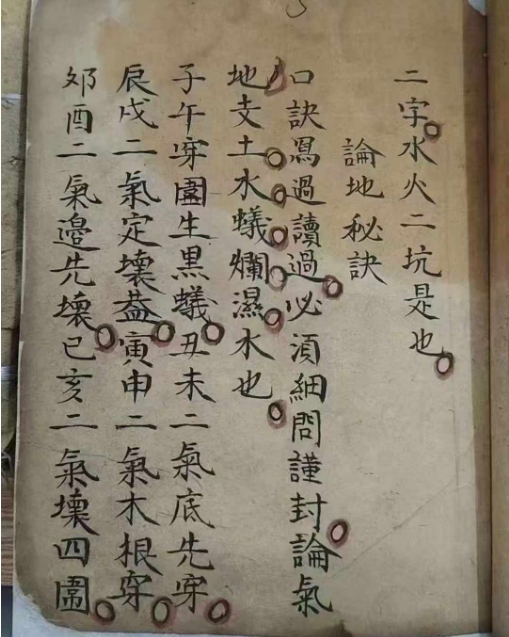 二字水火二坑是也
論地秘訣
口訣冩過讀過必湏細問謹封論氣
地支土水蟻爛濕水也
子午穿圍生黑蟻丑未二氣底先穿
辰戌二氣定壞盖寅申二氣木根穿
夘酉二氣邊先壞巳亥二氣壞四圍